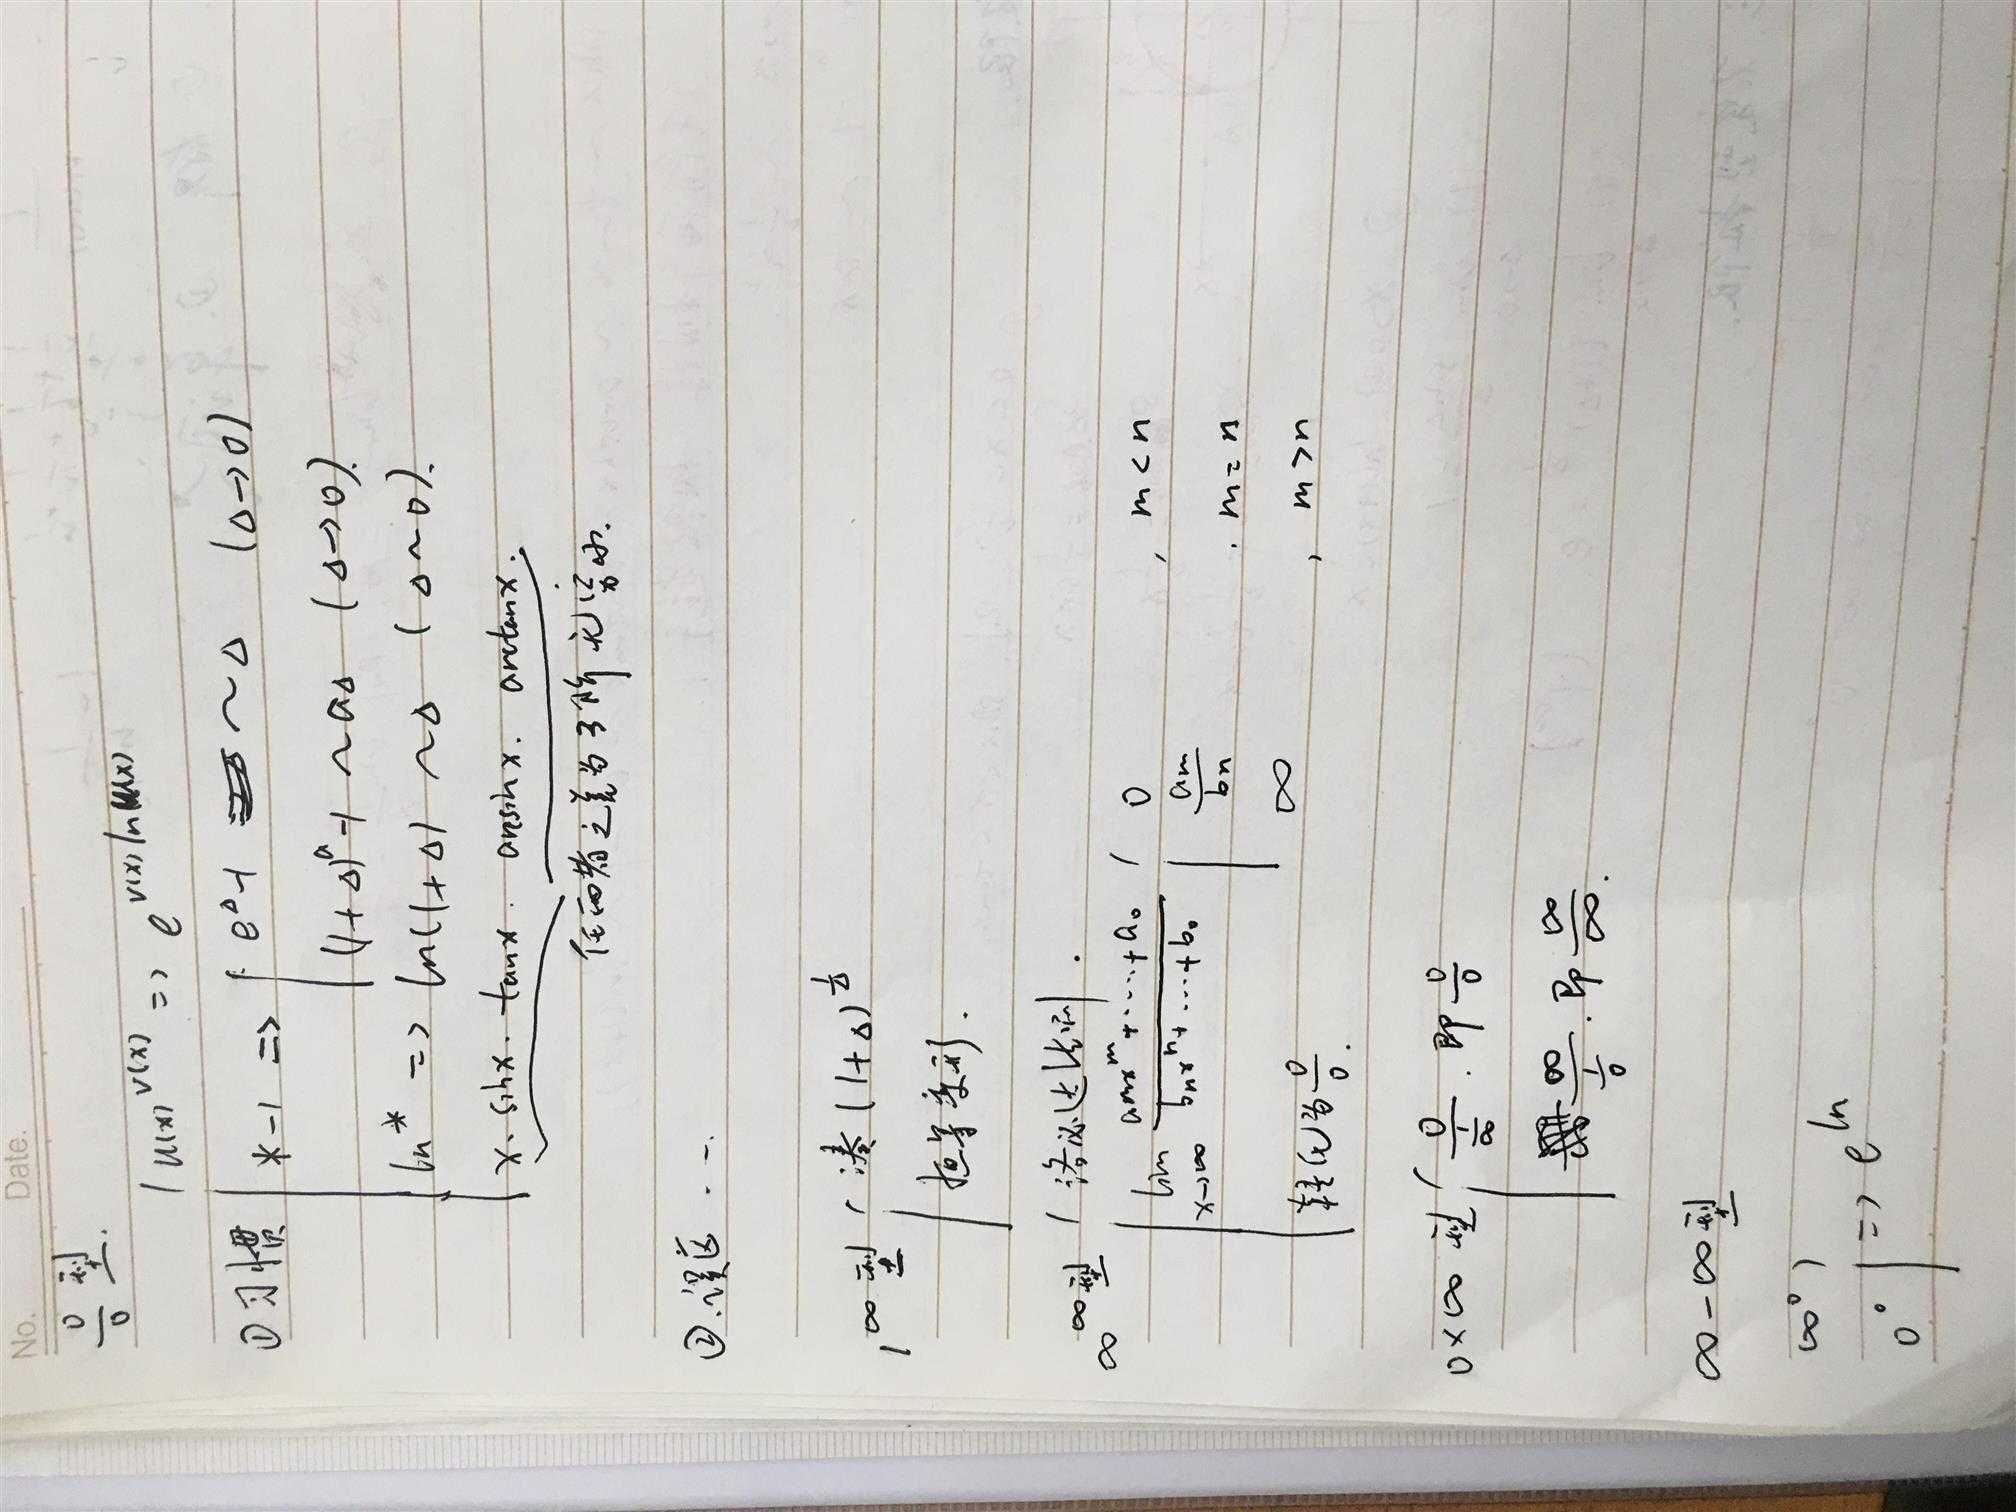 No. Date.
0/0 型.
① 习惯 { u(x)^v(x) => e^v(x)lnu(x)
*-1 => { e^Δ-1 ~ Δ (Δ→0)
(1+Δ)^a-1 ~ aΔ (Δ→0).
ln* => ln(1+Δ) ~ Δ (Δ~0).
x. sinx. tanx. arcsinx. arctanx.
任两者之差为3阶无穷小.
②.误区...
1^∞型 { 凑(1+Δ)^1/Δ
恒等变形.
∞/∞型 { 洛必达法则.
lim x→∞ (amx^m+……+a0)/(bnx^n+……+b0) { 0 , m<n
am/bn . m=n
∞ , m>n
转化为 0/0.
0×∞型 { 0/(1/∞) . 即 0/0
∞/(1/0) . 即 ∞/∞.
∞-∞型
∞^0
0^0 } => e^ln